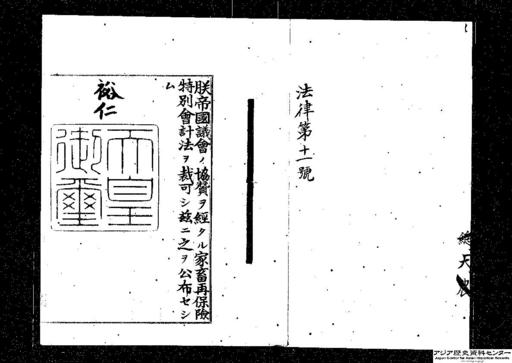 法律第十一號
朕帝國議會ノ協贊ヲ經タル家畜再保險
特別會計法ヲ裁可シ茲ニ之ヲ公布セシ
ム
裕仁
天皇
御璽
アジア歴史資料センター
Japan Center for Asian Historical Records